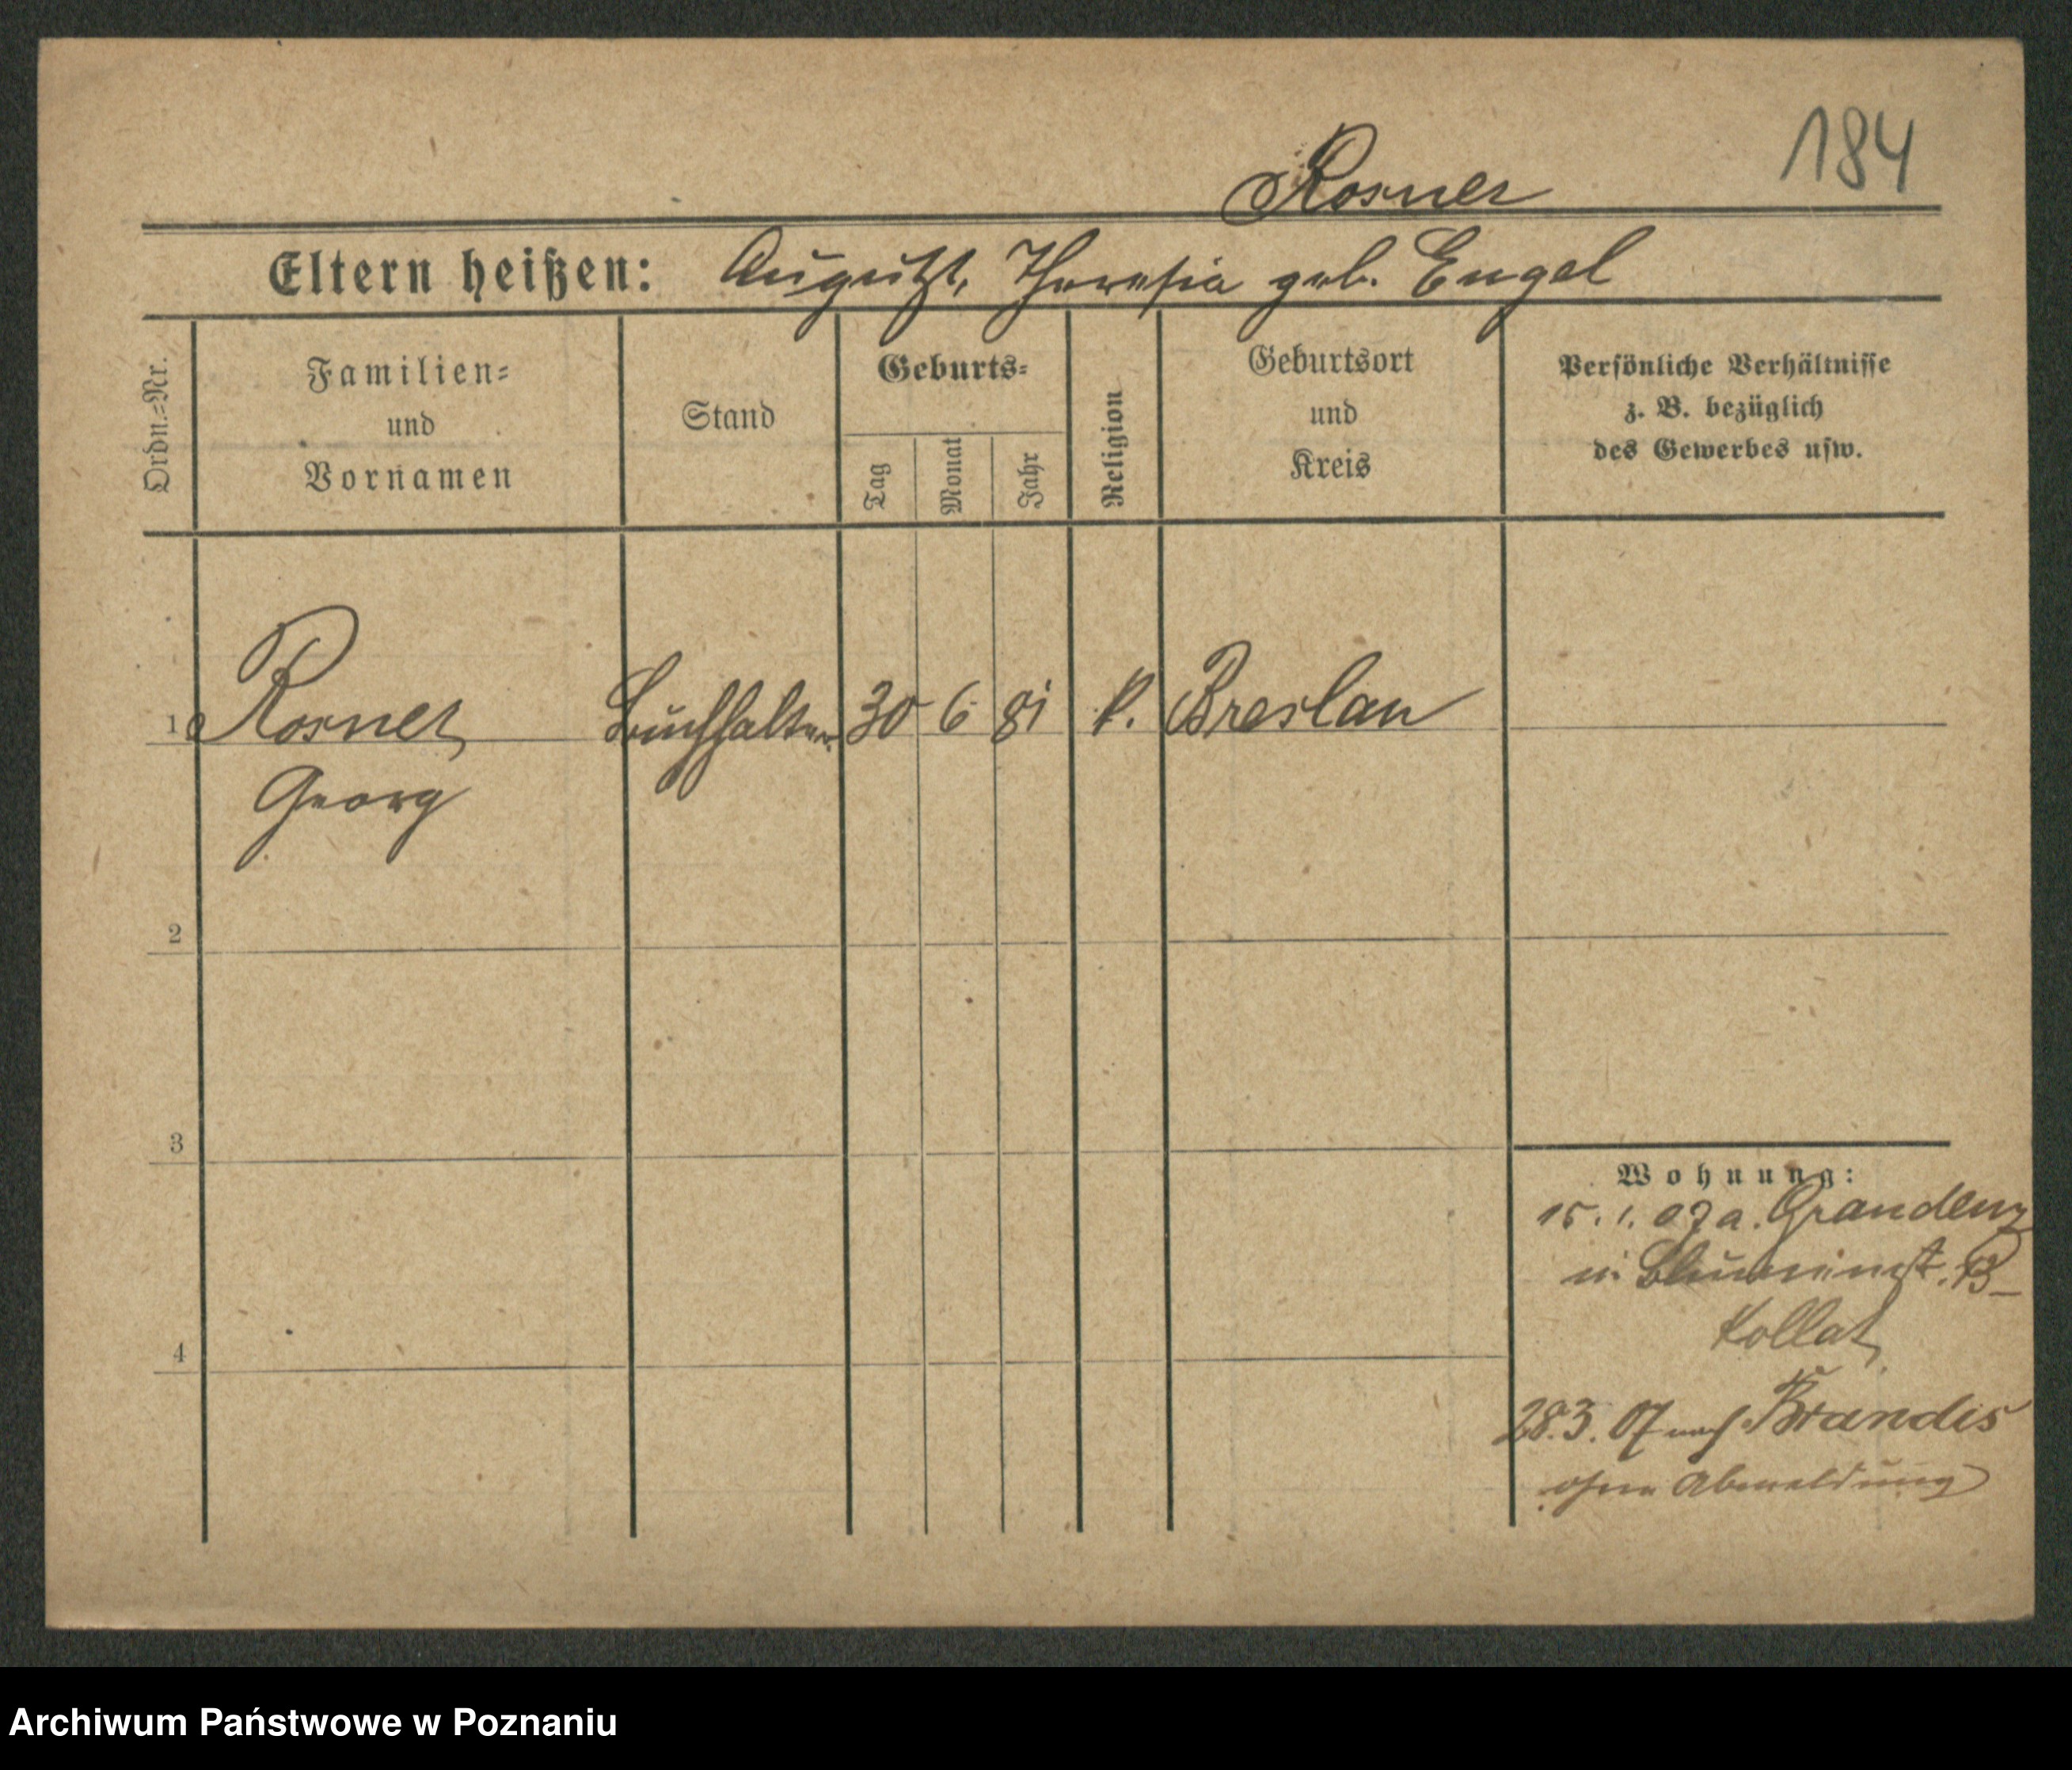 184
Rosner
Eltern heißen: August, Theresia geb. Engel
Ordn.=Nr.
Familien=
und
Vornamen
Stand
Geburts=
Tag
Monat
Jahr
Religion
Geburtsort
und
Kreis
Persönliche Verhältnisse
z. B. bezüglich
des Gewerbes usw.
1 Rosner Buchhalter 30 6 81 k. Breslau
Georg
2
3
4
Wohnung:
15.1.07 a. Graudenz
n. 13
Kollat
28.3.07 nach Brandis
ohne Abmeldung
Archiwum Państwowe w Poznaniu